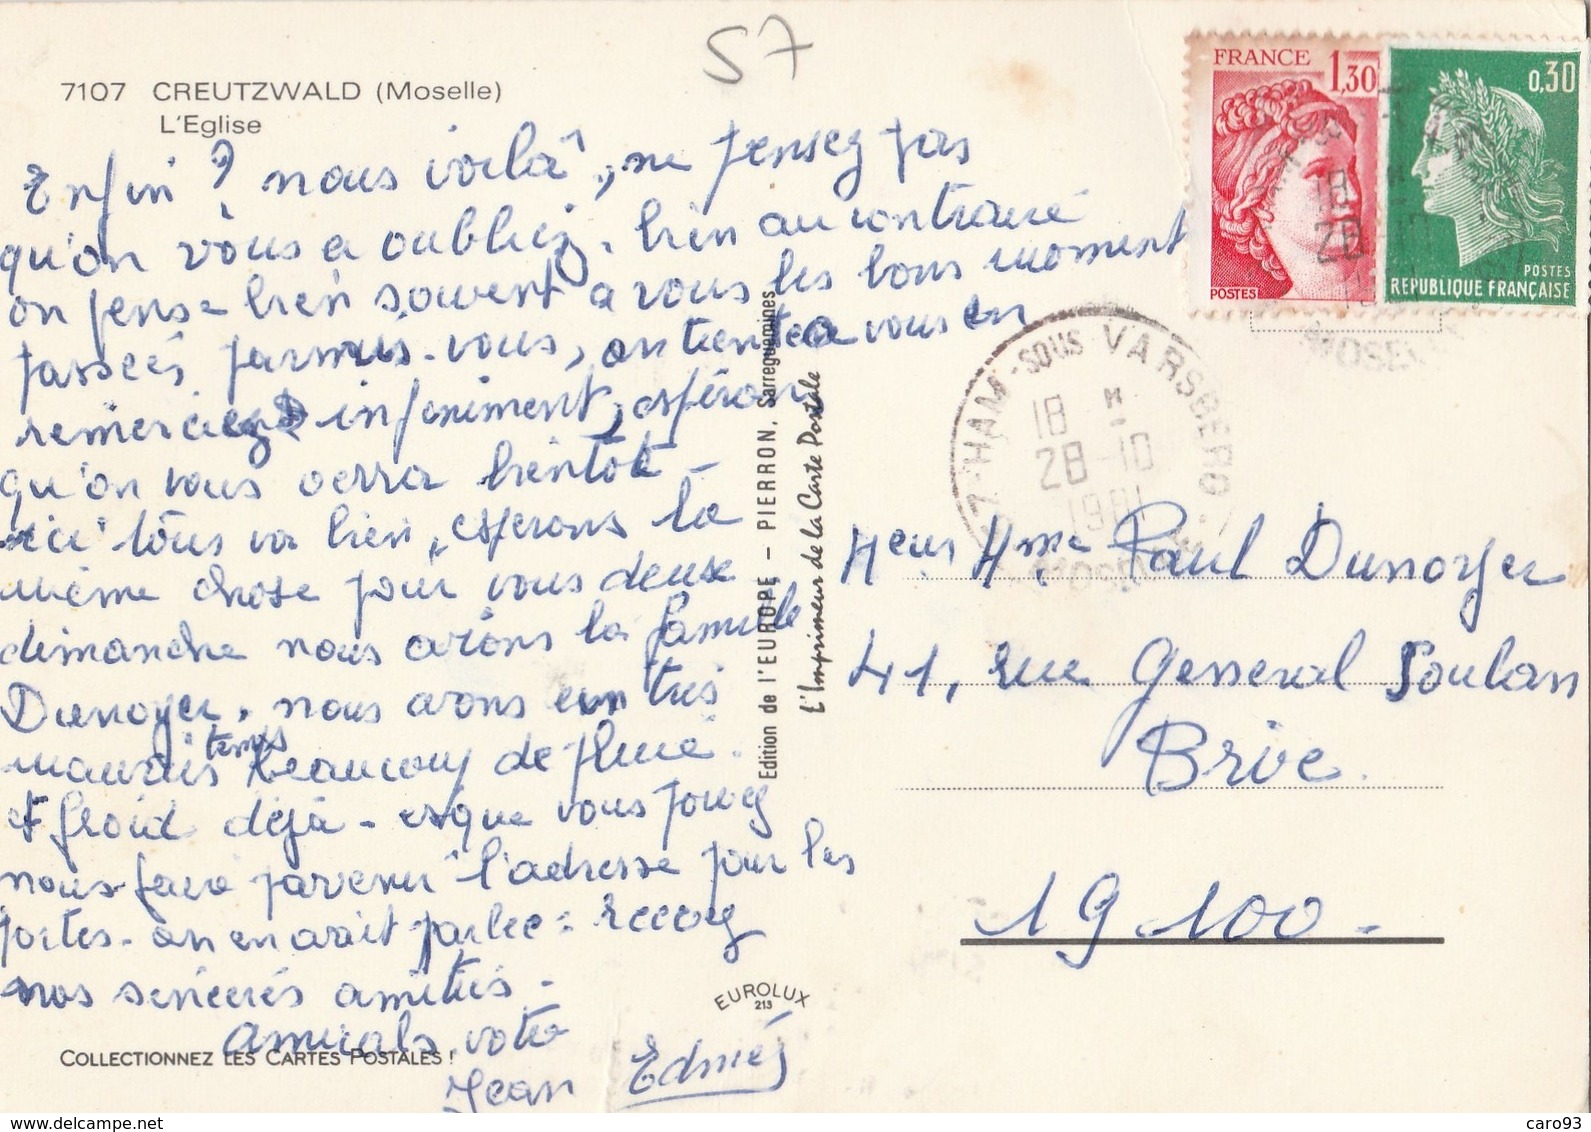 S7
7107 CREUTZWALD (Moselle)
L'Eglise
Enfin ? nous voila, ne pensez pas
qu'on vous a oubliez, bien au contraire
on pense bien souvent a vous les bons moment
passées parmis vous, on tient a vous en
remerciez infiniment, espérons
qu'on vous verra bientot -
ici tous va bien, esperons la
même chose pour vous deux
dimanche nous avons la famille
Dunoyer, nous avons eu un très
mauvais temps beaucoup de pluie.
et froid déjà - esque vous pouvez
nous faire parvenir l'adresse pour les
portes - on en avait parlee : recevez
nos sincères amitiés -
Amicals votre
Jean Edmée
COLLECTIONNEZ LES CARTES POSTALES !
EUROLUX
213
Edition de l'EUROPE – PIERRON, Sarreguemines
L'Imprimeur de la Carte Postale
FRANCE
1,30
POSTES
0,30
POSTES
REPUBLIQUE FRANÇAISE
HAM-SOUS VARSBERG
18 H
28-10
1981
MOSELLE
18
28
MOSELLE
Meur Mme Paul Dunoyer
41, rue General Soulan
Brive
19100 -
delcampe.net
caro93